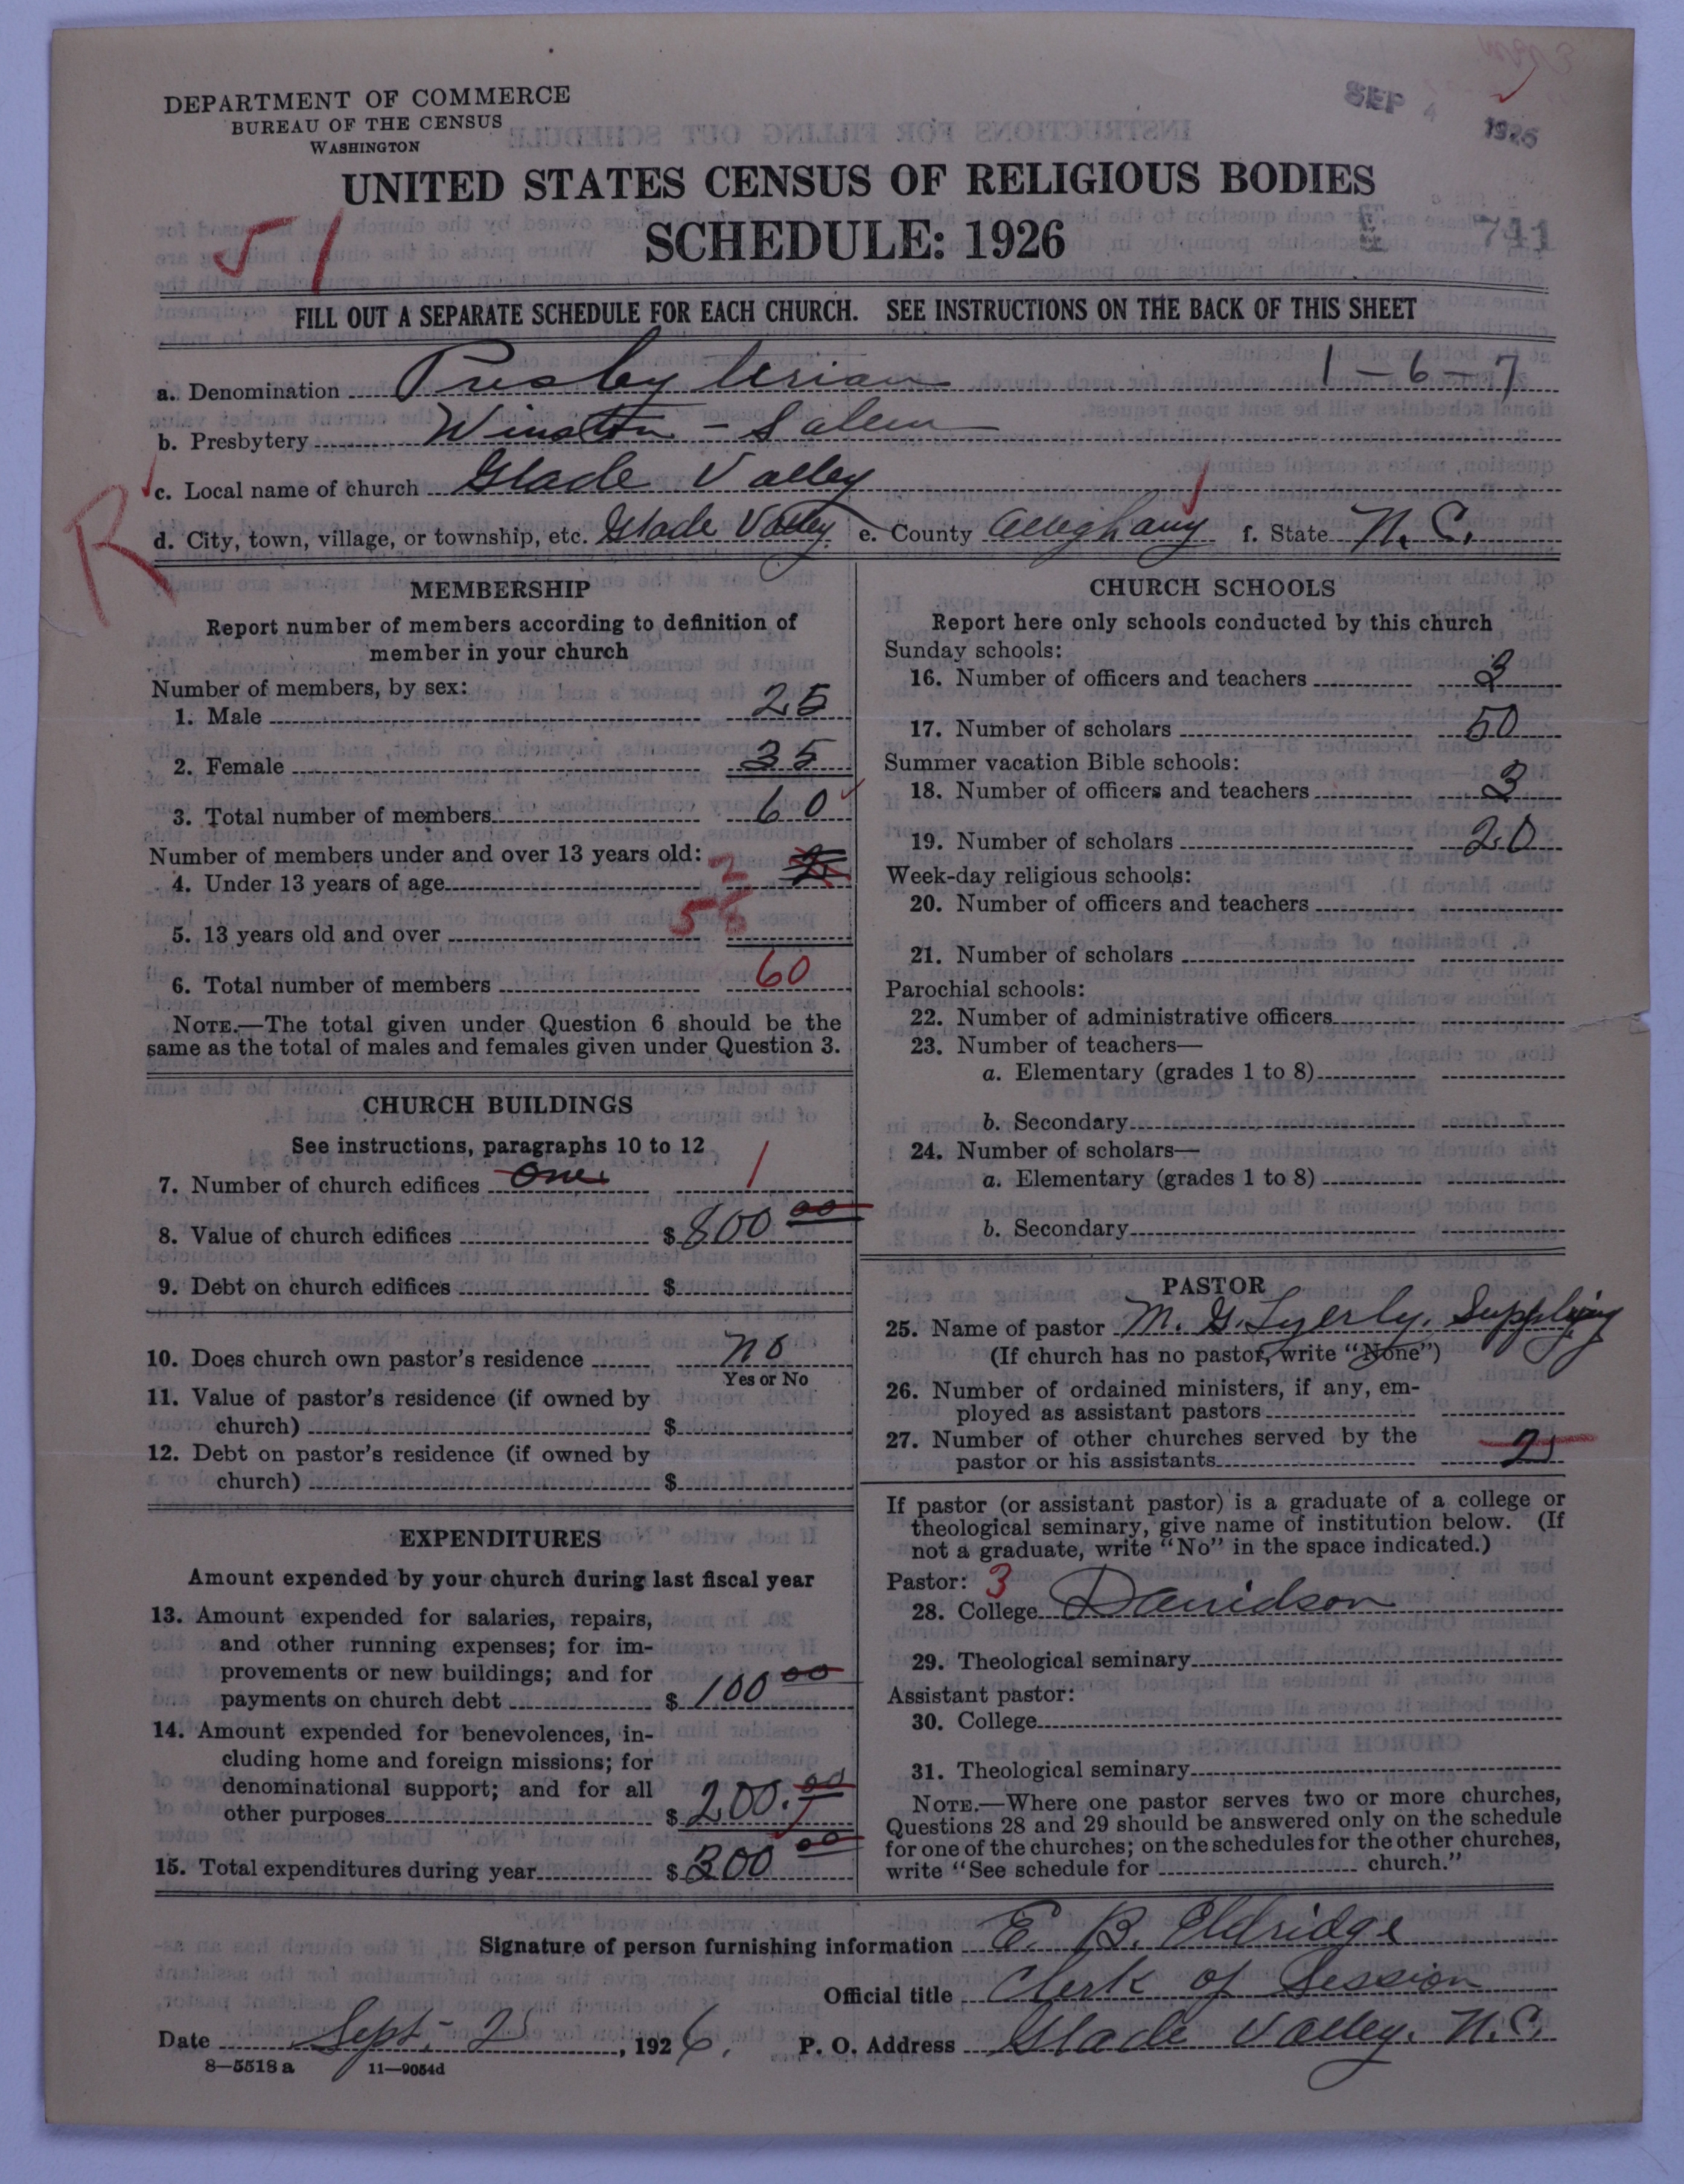 DEPARTMENT OF COMMERCE
BUREAU OF THE CENSUS
WASHINGTON
SEP 4 1926
UNITED STATES CENSUS OF RELIGIOUS BODIES
SCHEDULE: 1926
51
741
FILL OUT A SEPARATE SCHEDULE FOR EACH CHURCH. SEE INSTRUCTIONS ON THE BACK OF THIS SHEET
a. Denomination Presbyterian 1-6-7
b. Presbytery Winston-Salem
c. Local name of church Glade Valley
R
d. City, town, village, or township, etc. Glade Valley e. County Alleghany f. State N. C.
MEMBERSHIP
Report number of members according to definition of
member in your church
Number of members, by sex:
1. Male 25
2. Female 35
3. Total number of members 60
Number of members under and over 13 years old:
4. Under 13 years of age 2
5. 13 years old and over 58
6. Total number of members 60
NOTE.—The total given under Question 6 should be the
same as the total of males and females given under Question 3.
CHURCH BUILDINGS
See instructions, paragraphs 10 to 12
7. Number of church edifices One 1
8. Value of church edifices $ 800 00
9. Debt on church edifices $
10. Does church own pastor's residence no
Yes or No
11. Value of pastor's residence (if owned by
church) $
12. Debt on pastor's residence (if owned by
church) $
EXPENDITURES
Amount expended by your church during last fiscal year
13. Amount expended for salaries, repairs,
and other running expenses; for im-
provements or new buildings; and for
payments on church debt $ 100 00
14. Amount expended for benevolences, in-
cluding home and foreign missions; for
denominational support; and for all
other purposes $ 200.00
15. Total expenditures during year $ 300 00
CHURCH SCHOOLS
Report here only schools conducted by this church
Sunday schools:
16. Number of officers and teachers 3
17. Number of scholars 50
Summer vacation Bible schools:
18. Number of officers and teachers 3
19. Number of scholars 20
Week-day religious schools:
20. Number of officers and teachers
21. Number of scholars
Parochial schools:
22. Number of administrative officers
23. Number of teachers—
a. Elementary (grades 1 to 8)
b. Secondary
24. Number of scholars—
a. Elementary (grades 1 to 8)
b. Secondary
PASTOR
25. Name of pastor M. G. Lyerly, Supplying
(If church has no pastor, write "None")
26. Number of ordained ministers, if any, em-
ployed as assistant pastors
27. Number of other churches served by the
pastor or his assistants
If pastor (or assistant pastor) is a graduate of a college or
theological seminary, give name of institution below. (If
not a graduate, write "No" in the space indicated.)
Pastor: 3
28. College Davidson
29. Theological seminary
Assistant pastor:
30. College
31. Theological seminary
NOTE.—Where one pastor serves two or more churches,
Questions 28 and 29 should be answered only on the schedule
for one of the churches; on the schedules for the other churches,
write "See schedule for church."
Signature of person furnishing information E. B. Eldridge
Official title Clerk of Session
Date Sept. 2, 1926. P. O. Address Glade Valley. N.C.
8—5518 a 11—9054d